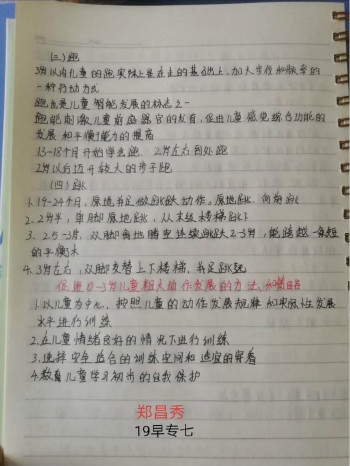 (三) 跑
3岁以内儿童的跑实际上是在走的基础上,加大步伐和频率的
一种行动方式
跑也是儿童智能发展的标志之一
跑能刺激儿童前庭器官的发育,促进儿童感觉综合功能的
发展和平衡能力的提高
13-18个月开始学会跑 2岁左右到处跑
2岁以后迈开较大的步子跑
(四) 跳
1. 19-24个月,原地并足做跳跃动作。原地跳、向前跳
2. 2岁半,单脚原地跳,从末级楼梯跳下
3. 2.5-3岁,双脚离地腾空连续跳跃2-3岁,能跨越一条短
的平衡木
4. 3岁左右,双脚交替上下楼梯,并足跳远
促进0-3岁儿童粗大动作发展的方法和策略
1.以儿童为中心,按照儿童的动作发展规律和实际性发展
水平进行训练
2.在儿童情绪良好的情况下进行训练
3.选择安全适合的训练空间和适宜的穿着
4.教育儿童学习初步的自我保护
郑昌秀
19早专七